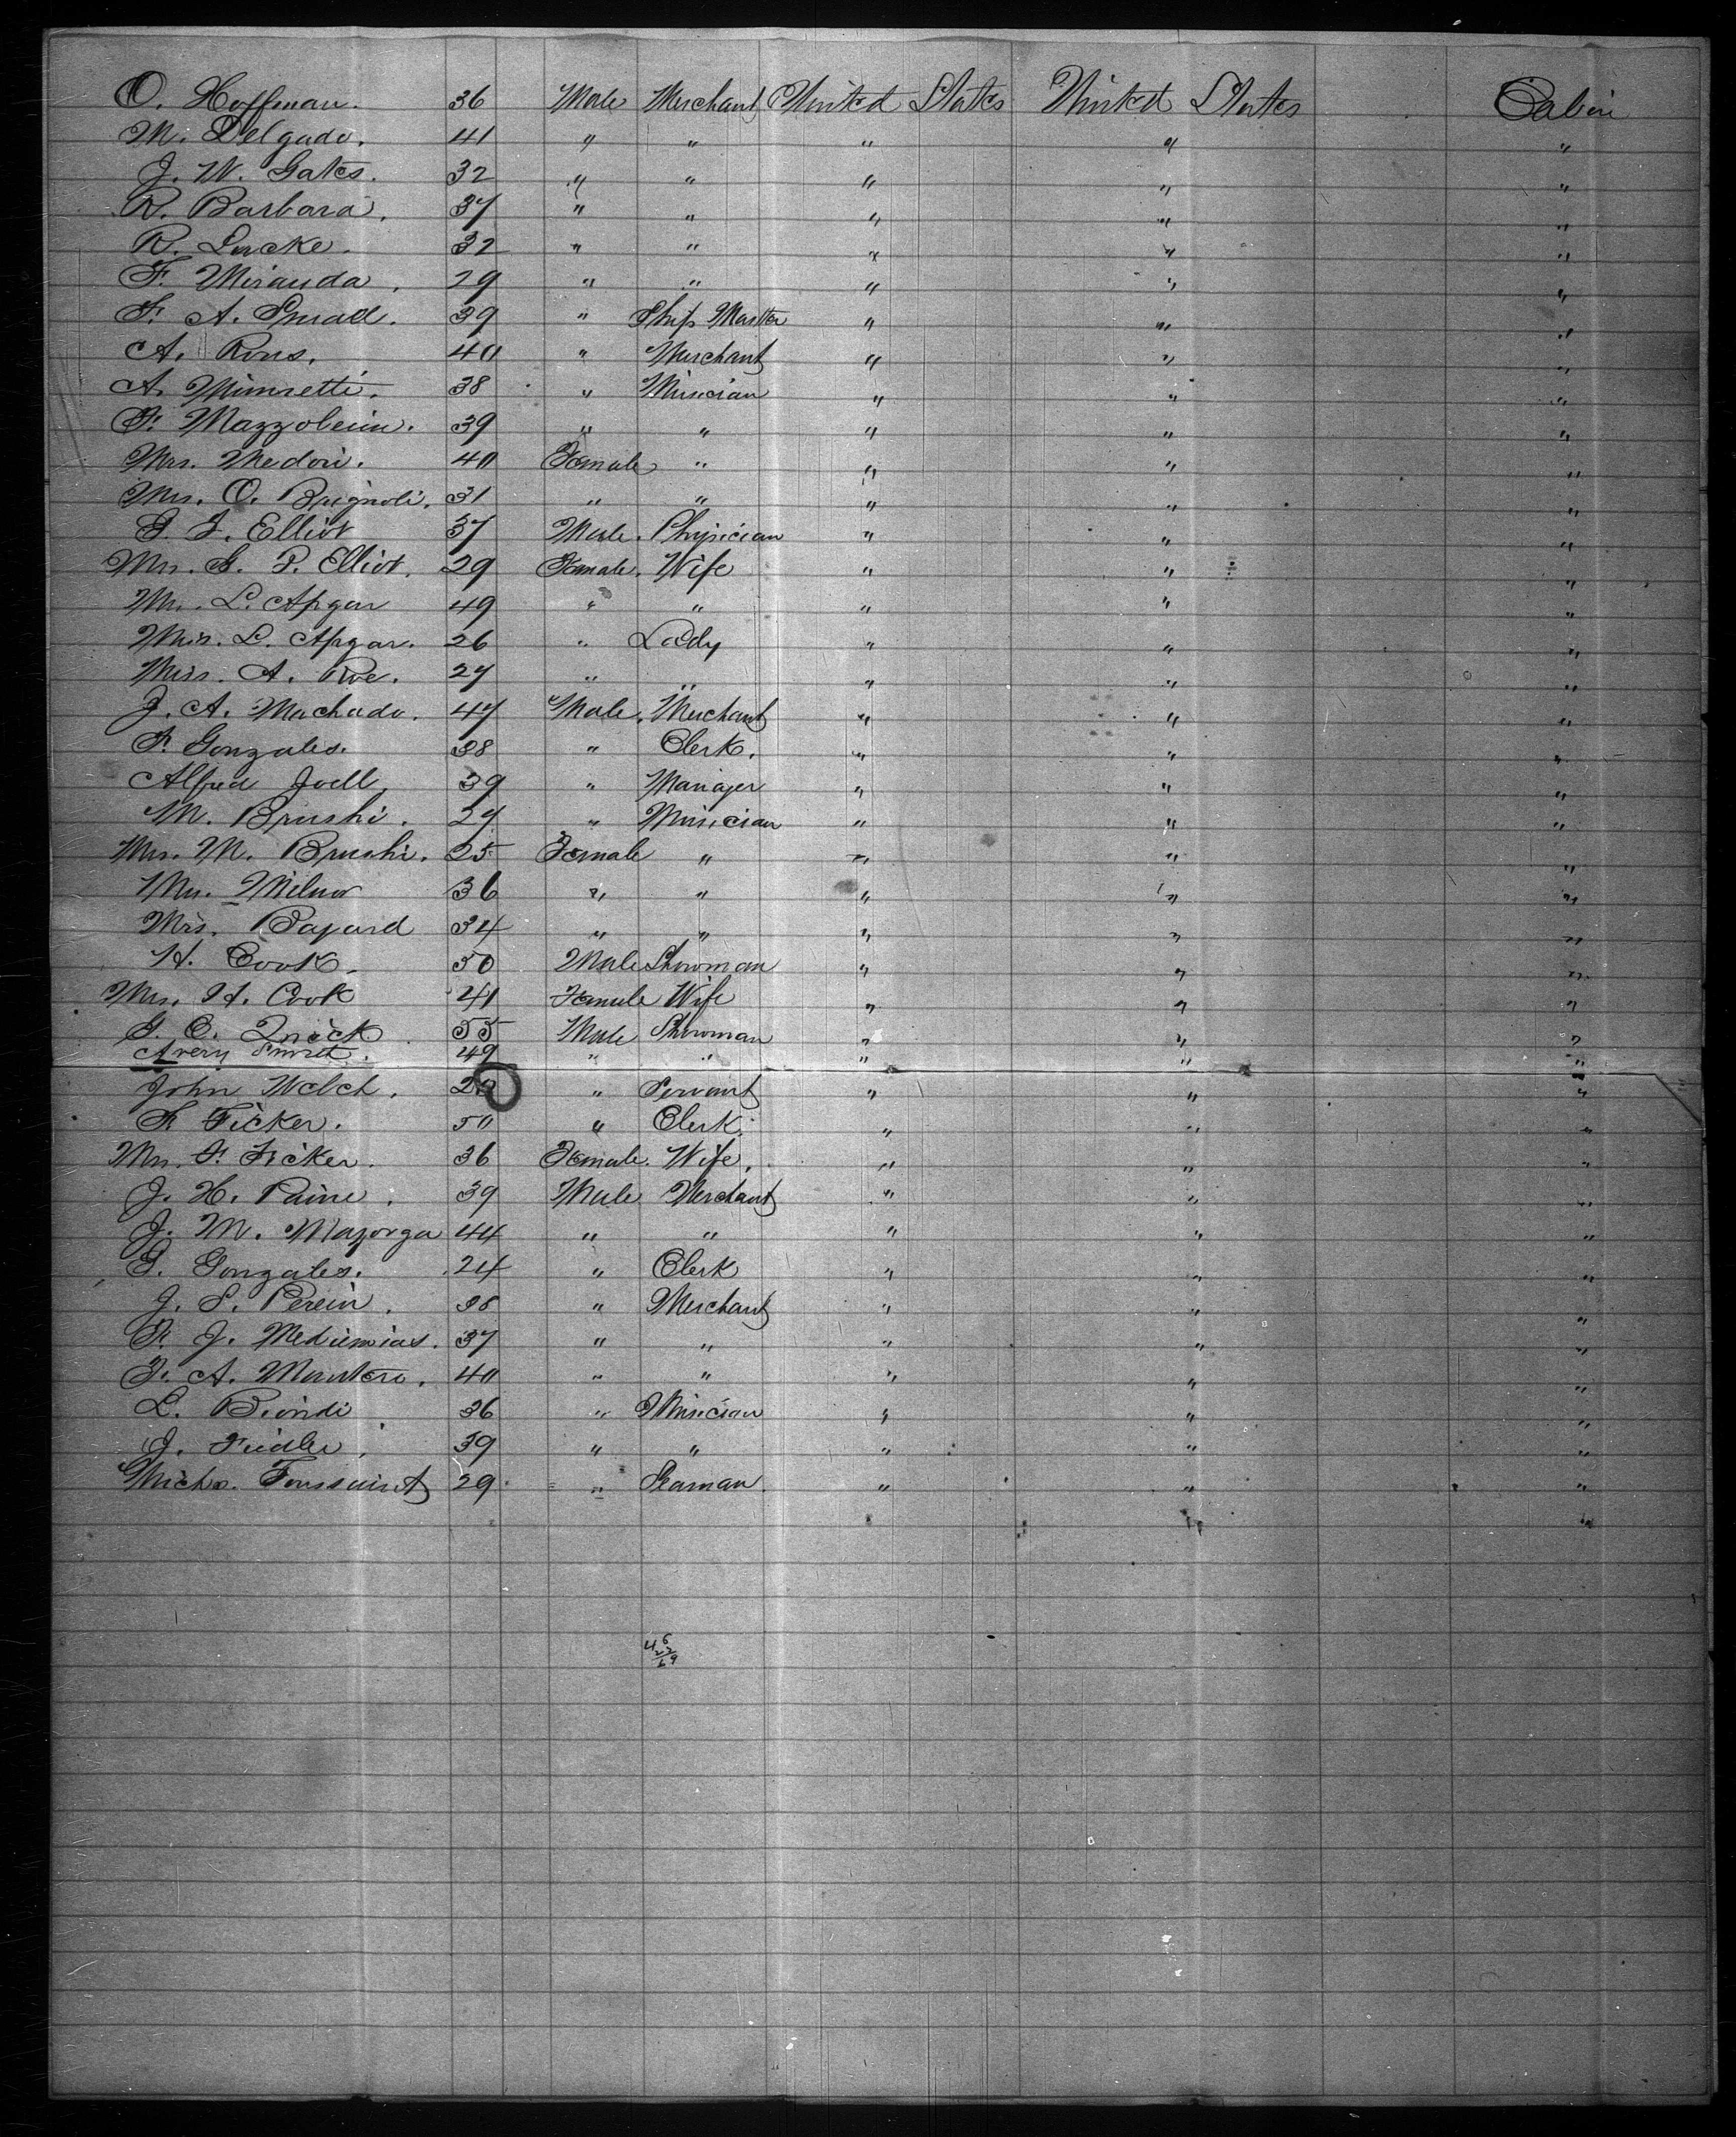 O. Hoffman. 36 Male Merchant United States United States Cabin
M. Delgado. 41 " " " " "
J. W. Gates. 32 " " " " "
R. Barbara. 37 " " " " "
R. Lucke. 32 " " " " "
F. Miranda. 29 " " " " "
F. A. 39 " Ship Master " " "
A. Rons. 40 " Merchant " " "
A. 38 " Musician " " "
F. Mazzoleini. 39 " " " " "
Mrs. Medori. 40 Female " " " "
Mrs. O. Brignoli. 31 " " " " "
Elliot 37 Male. Physician " " "
Mrs. S. P. Elliot. 29 Female. Wife " " "
L. Apgar 49 " " " " "
Miss. L. Apgar. 26 " Lady " " "
Miss. A. Roe. 27 " " " " "
J. A. Machado. 47 Male. Merchant " " "
F. Gonzales. 38 " Clerk. " " "
Alfred Joell 39 " Manager " " "
M. Brushi. 27 " Musician " " "
Mrs. M. Brushi. 25 Female " " " "
Mrs. Milnor 36 " " " " "
Mrs. Bayard 34 " " " " "
H. Cook. 50 Male Showman " " "
Mrs. H. Cook 41 Female Wife " " "
G. C. Quick 55 Male Showman " " "
Avery Smith. 49 " " " " "
John Welch. " Servant " " "
F. Ficker. 50 " Clerk. " " "
Mrs. F. Ficker. 36 Female. Wife. " " "
J. H. Paine. 39 Male Merchant " " "
J. M. Mayorga 44 " " " " "
G. Gonzales. 24 " Clerk " " "
J. S. Perein. 38 " Merchant " " "
F. J. 37 " " " " "
F. A. 40 " " " " "
L. Biondi 36 " Musician " " "
J. Fiedler. 39 " " " " "
Toussaint 29 " Seaman. " " "
46
23
69